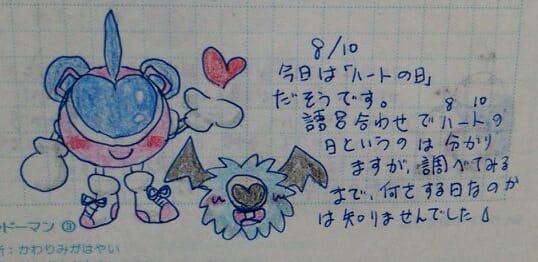 8/10
今日は「ハートの日」
だそうです。
8 10
語呂合わせでハートの
日というのは分かり
ますが、調べてみる
まで、何をする日なのか
は知りませんでした
ドーマン ③
所：かわりみがはやい